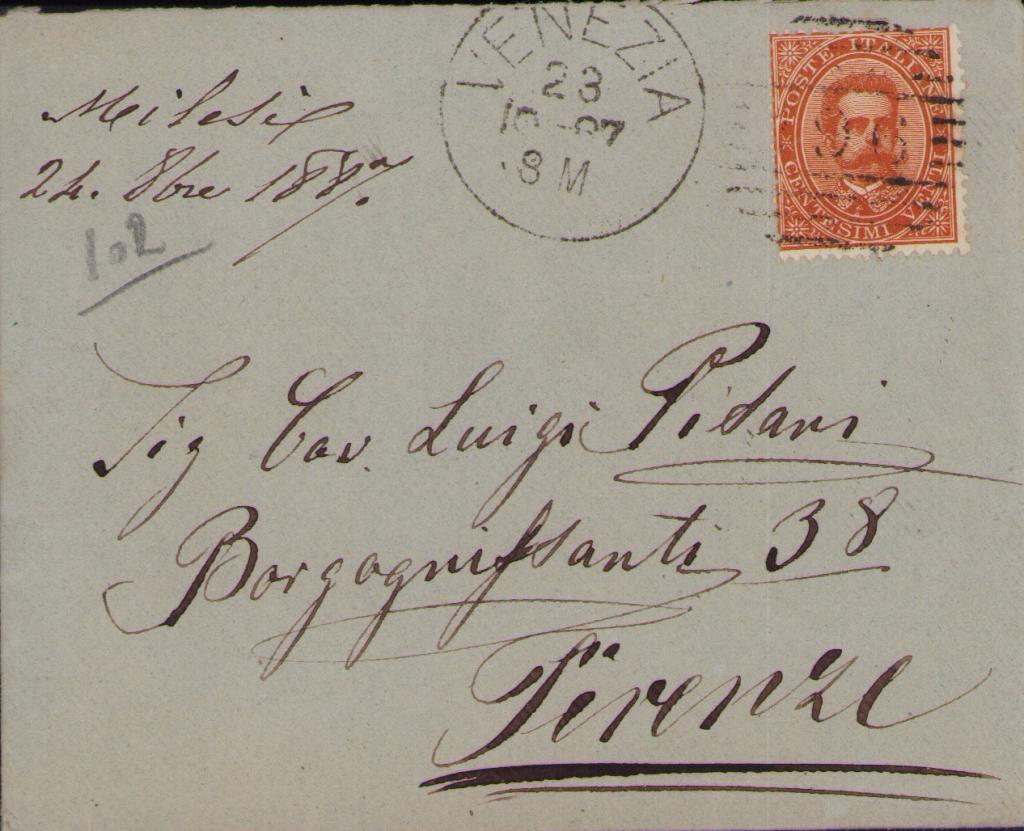 Milesi
24. 8bre 1887.
102
VENEZIA
23
10-87
8 M
POSTE ITALIANE
CENTESIMI VENTI
Sig Cav. Luigi Pisani
Borgognissanti 38
Firenze